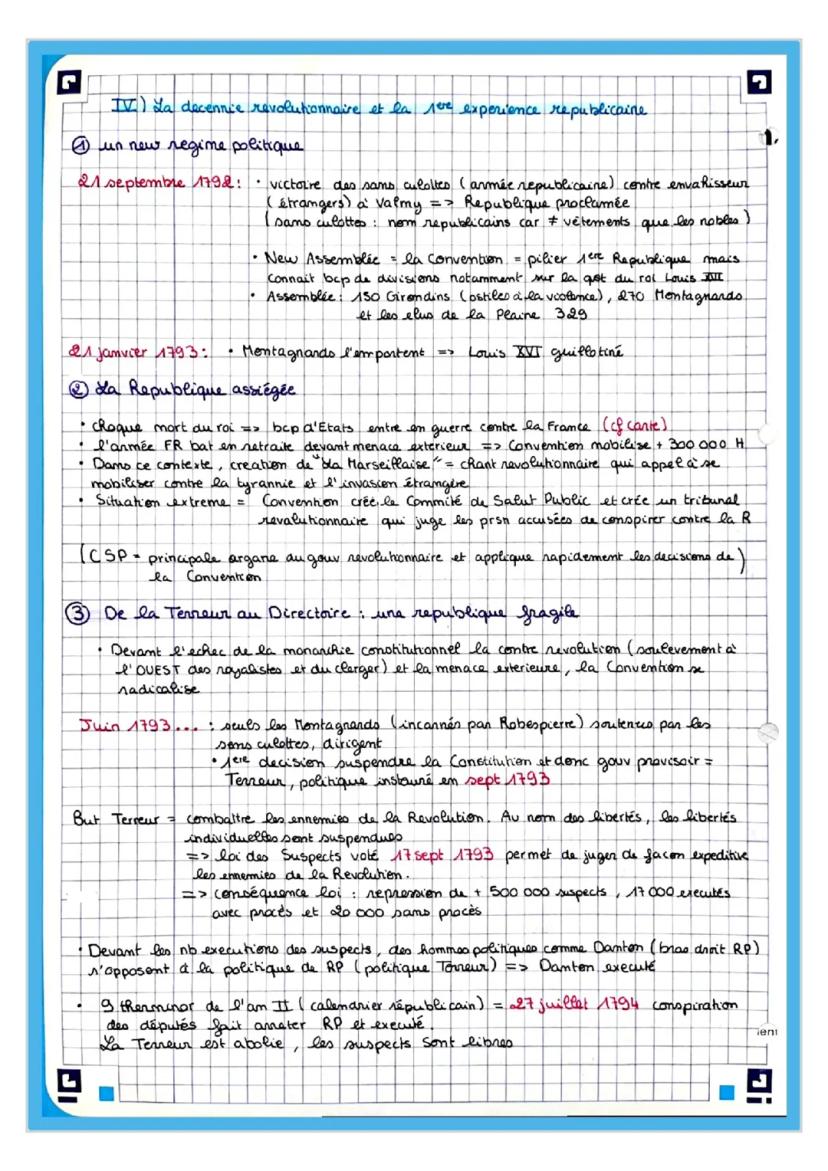 IV) La decennie revolutionnaire et la 1ere experience republicaine
1.
① un new regime politique
21 septembre 1792: • victoire des sans culottes (armée republicaine) contre envahisseur
(étrangers) à Valmy => Republique proclamée
(sans culottes : nom republicains car ≠ vêtements que les nobles)
• New Assemblée = la Convention = pilier 1ere Republique mais
connait bcp de divisions notamment sur la qst du roi Louis XVI
• Assemblée : 150 Girondins (ostiles à la violence), 270 Montagnards
et les elus de la Plaine 329
21 janvier 1793 : • Montagnards l'emportent => Louis XVI guillotiné
② La Republique assiégée
• choque mort du roi => bcp d'Etats entre en guerre contre la France (cf carte)
• l'armée FR bat en retraite devant menace exterieur => Convention mobilise + 300 000 H
• Dans ce contexte, creation de "la Marseillaise" = chant revolutionnaire qui appel à se
mobiliser contre la tyrannie et l'invasion étrangère
• Situation extreme = Convention crée le Commité de Salut Public et crée un tribunal
revolutionnaire qui juge les prsn accusées de conspirer contre la R
(CSP = principale organe du gouv revolutionnaire et applique rapidement les decisions de)
la Convention
③ De la Terreur au Directoire : une republique fragile
• Devant l'echec de la monarchie constitutionnel la contre revolution (soulevement à
l'OUEST des royalistes et du clerger) et la menace exterieure, la Convention se
radicalise
Juin 1793... : seuls les Montagnards (incarnés par Robespierre) soutenus par les
sans culottes, dirigent
• 1ere decision suspendre la Constitution et donc gouv provisoir =
Terreur, politique instauré en sept 1793
But Terreur = combattre les ennemies de la Revolution. Au nom des libertés, les libertés
individuelles sont suspendues
=> loi des Suspects voté 17 sept 1793 permet de juger de facon expeditive
les ennemies de la Revolution.
=> conséquence loi : repression de + 500 000 suspects, 17 000 executés
avec procès et 20 000 sans procès
• Devant les nb executions des suspects, des hommes politiques comme Danton (bras droit RP)
s'opposent à la politique de RP (politique Terreur) => Danton executé
• 9 therminor de l'an II (calendrier républicain) = 27 juillet 1794 conspiration
des députés fait arreter RP et executé.
La Terreur est abolie, les suspects sont libres
ient